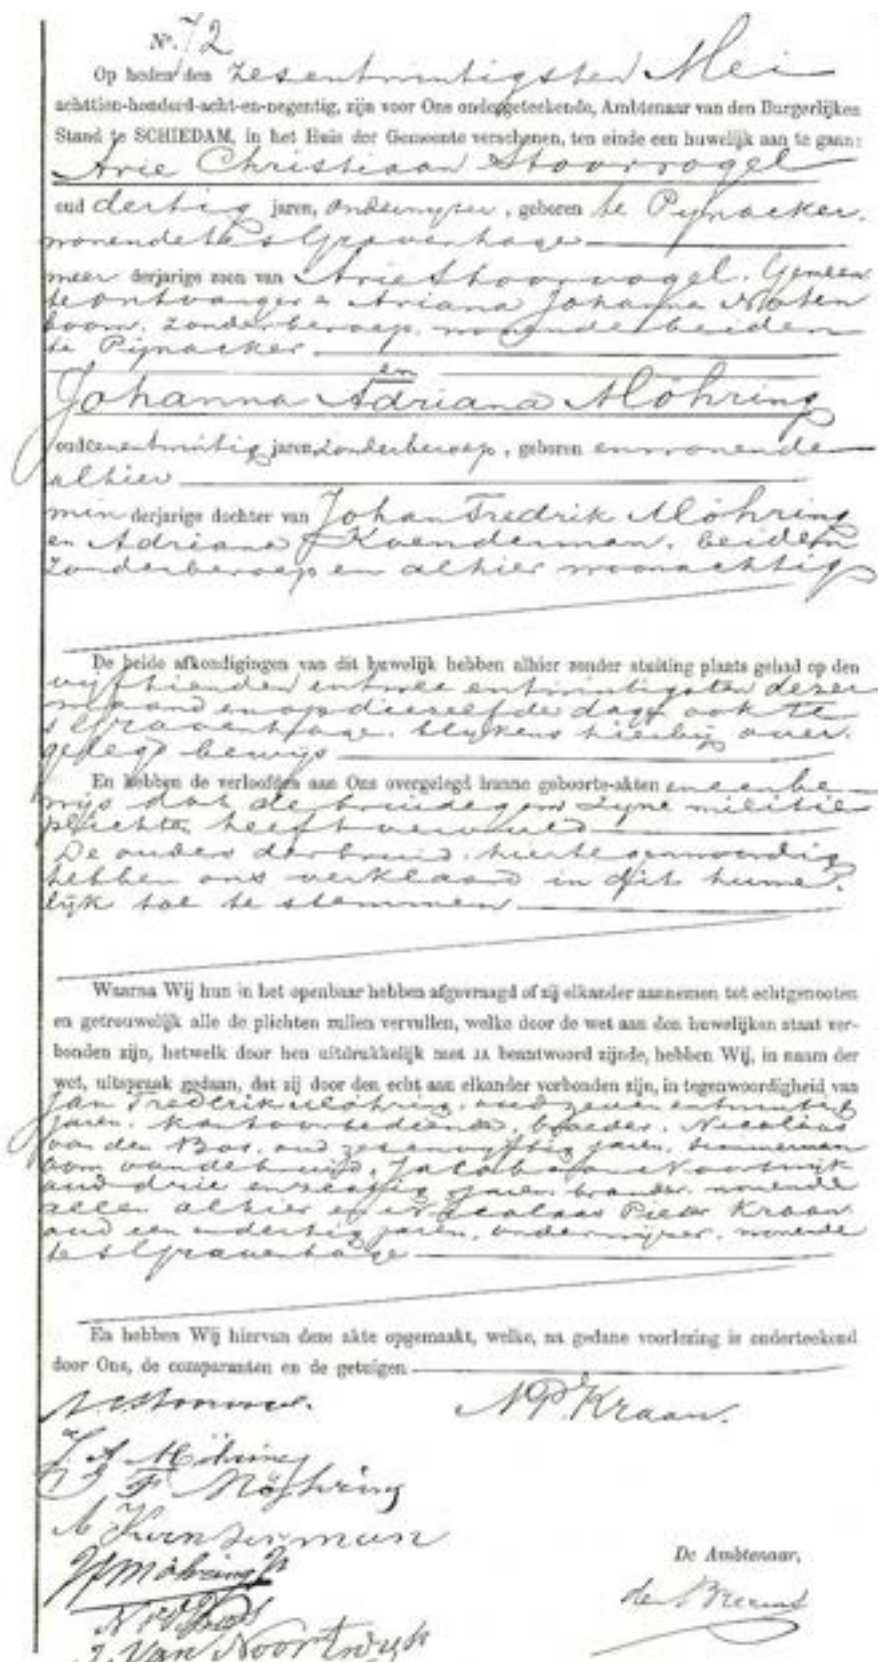 No. 72
Op heden den zesentwintigsten Mei
achttien-honderd-acht-en-negentig, zijn voor Ons ondergeteekende, Ambtenaar van den Burgerlijken
Stand te SCHIEDAM, in het Huis der Gemeente verschenen, ten einde een huwelijk aan te gaan:
Arie Christiaan Stoorvogel
oud dertig jaren, onderwijzer, geboren te Pijnacker.
wonende te s Gravenhage
meer derjarige zoon van Arie Stoorvogel. Gemeen
te ontvanger en Ariana Johanna Noten
boom. zonder beroep. wonende beiden
te Pijnacker
en
Johanna Adriana Möhring
oud eenentwintig jaren zonder beroep, geboren en wonende
alhier
min derjarige dochter van Johan Fredrik Möhring
en Adriana Koenderman. beiden
zonder beroep en alhier woonachtig
De beide afkondigingen van dit huwelijk hebben alhier zonder stuiting plaats gehad op den
vijftienden en twee entwintigsten dezer
maand en op diezelfde dagen ook te
s Gravenhage. blijkens hierbij over.
gelegd bewijs
En hebben de verloofden aan Ons overgelegd hunne geboorte-akten en een be
wijs dat de bruidegom zijne militie
plichten heeft vervuld
De ouders der bruid. hier tegenwoordig
hebben ons verklaard in dit huwe.
lijk toe te stemmen
Waarna Wij hun in het openbaar hebben afgevraagd of zij elkander aannemen tot echtgenooten
en getrouwelijk alle de plichten zullen vervullen, welke door de wet aan den huwelijken staat ver-
bonden zijn, hetwelk door hen uitdrukkelijk met JA beantwoord zijnde, hebben Wij, in naam der
wet, uitspraak gedaan, dat zij door den echt aan elkander verbonden zijn, in tegenwoordigheid van
Jan Frederik Möhring. oud zeven entwintig
jaren. kantoorbediende, broeder. Nicolaas
van den Bos. oud zesenvijftig jaren. timmerman
oom van de bruid, Jacobus van Noortwijk
oud drie enzestig jaren. brander. wonende
allen alhier en Nicolaas Pieter Kraan
oud een endertig jaren. onderwijzer. wonende
te s Gravenhage
En hebben Wij hiervan deze akte opgemaakt, welke, na gedane voorlezing is onderteekend
door Ons, de comparanten en de getuigen
N.P. Kraan.
J. A. Möhring
J F Möhring
A Kunderman
JF Möhring Jr
N vd Bos
J. Van Noortwijk
De Ambtenaar,